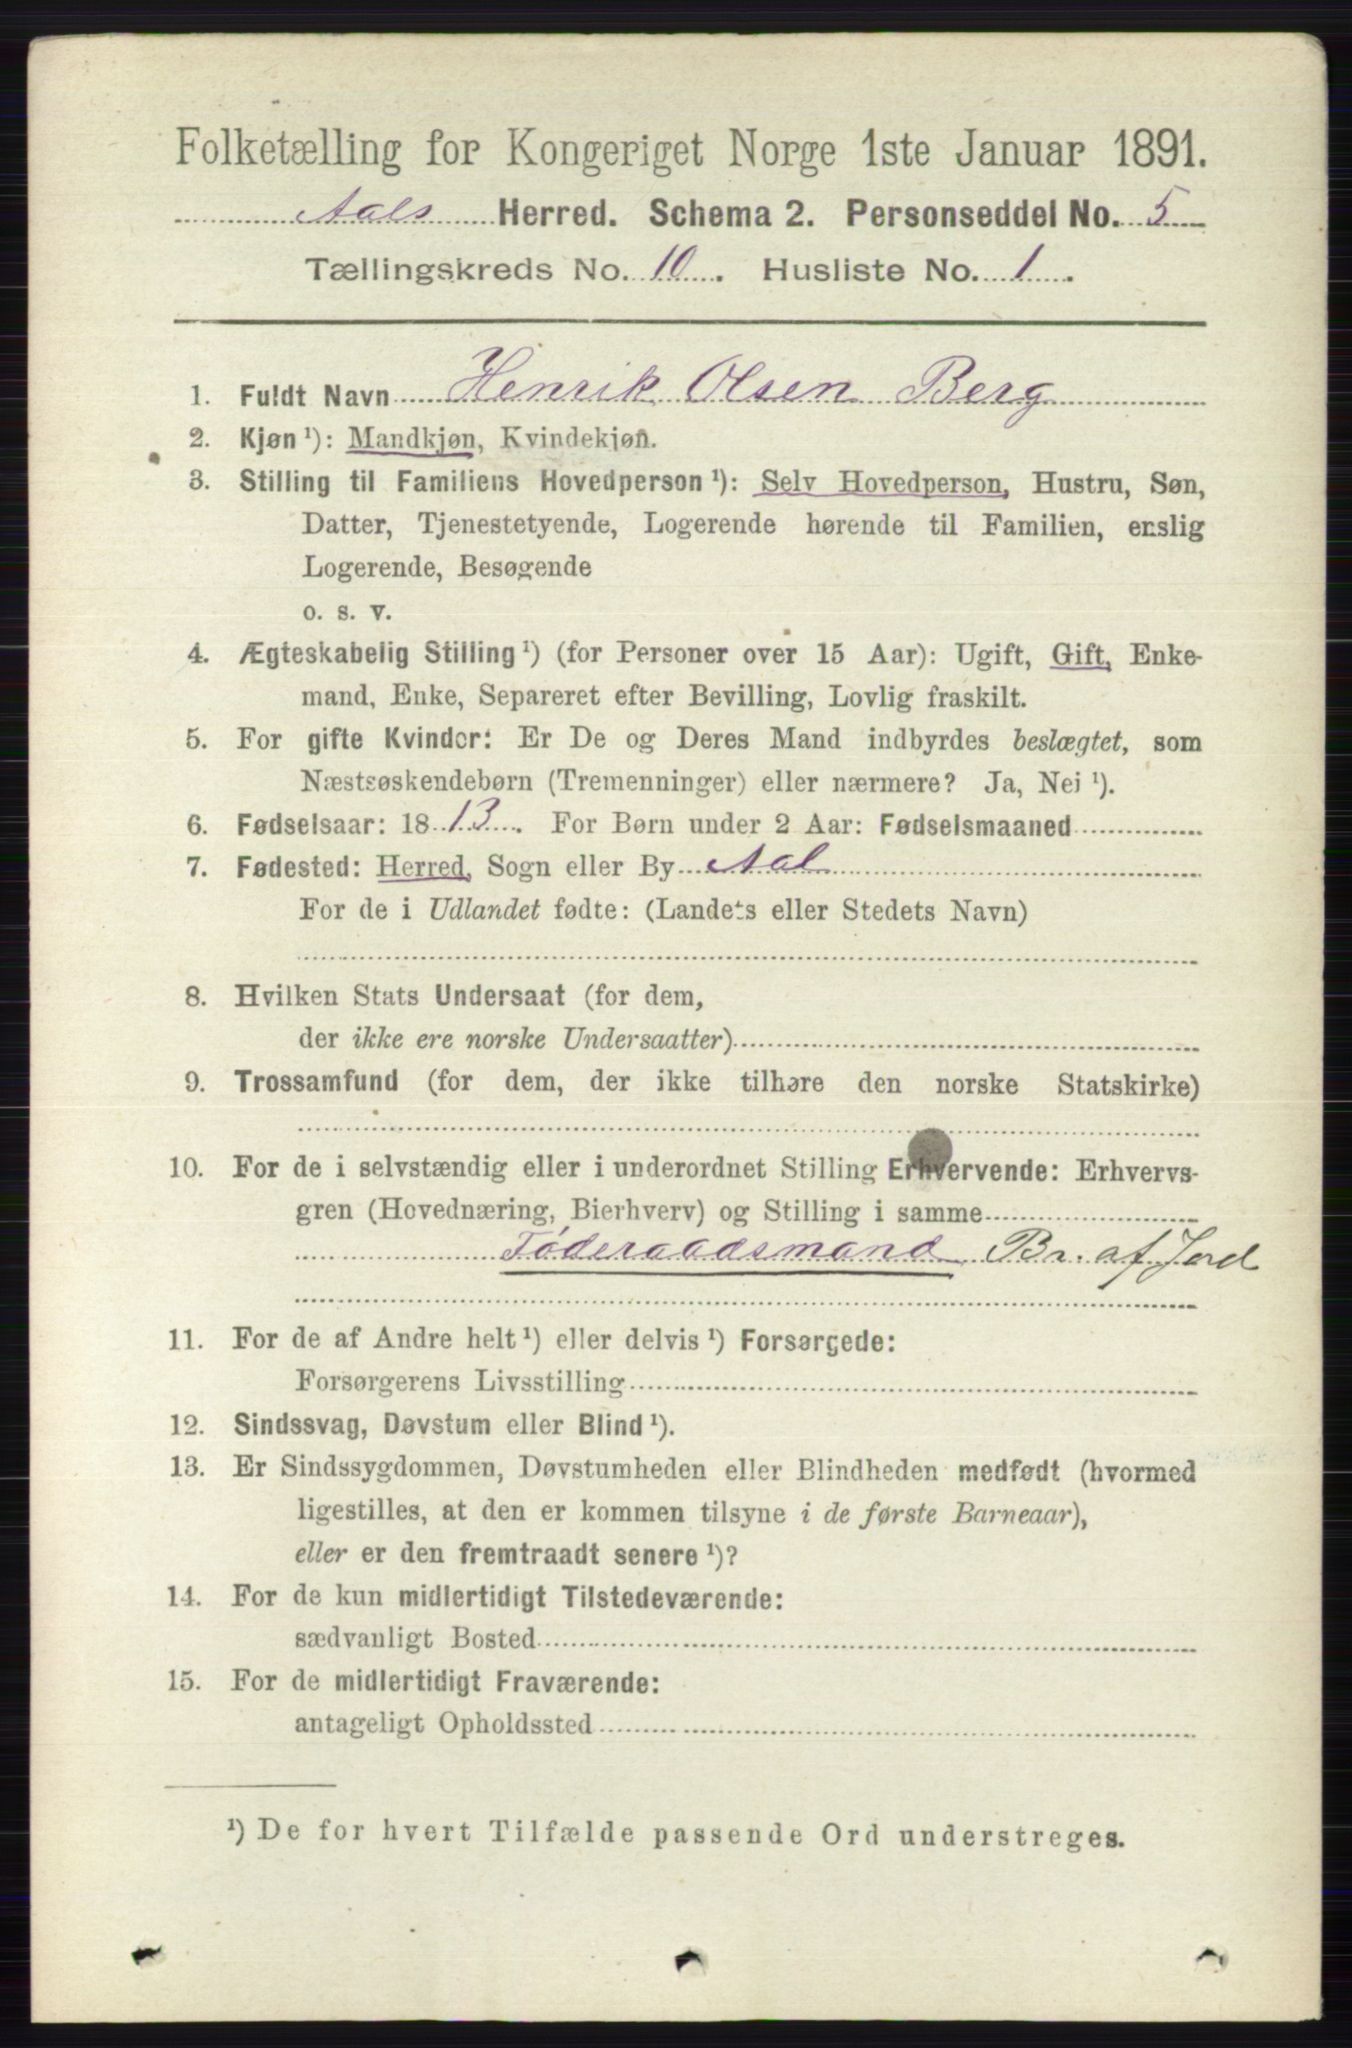 Folketælling for Kongeriget Norge 1ste Januar 1891.
Aals Herred. Schema 2. Personseddel No. 5
Tællingskreds No. 10. Husliste No. 1.
1. Fuldt Navn Henrik Olsen Berg
2. Kjøn ¹): Mandkjøn, Kvindekjøn.
3. Stilling til Familiens Hovedperson ¹): Selv Hovedperson, Hustru, Søn,
Datter, Tjenestetyende, Logerende hørende til Familien, enslig
Logerende, Besøgende
o. s. v.
4. Ægteskabelig Stilling ¹) (for Personer over 15 Aar): Ugift, Gift, Enke-
mand, Enke, Separeret efter Bevilling, Lovlig fraskilt.
5. For gifte Kvinder: Er De og Deres Mand indbyrdes beslægtet, som
Næstsøskendebørn (Tremenninger) eller nærmere? Ja, Nei ¹).
6. Fødselsaar: 1813. For Børn under 2 Aar: Fødselsmaaned
7. Fødested: Herred, Sogn eller By Aal
For de i Udlandet fødte: (Landets eller Stedets Navn)
8. Hvilken Stats Undersaat (for dem,
der ikke ere norske Undersaatter)
9. Trossamfund (for dem, der ikke tilhøre den norske Statskirke)
10. For de i selvstændig eller i underordnet Stilling Erhvervende: Erhvervs-
gren (Hovednæring, Bierhverv) og Stilling i samme
Föderaadsmand Br. af Jord
11. For de af Andre helt ¹) eller delvis ¹) Forsørgede:
Forsørgerens Livsstilling
12. Sindssvag, Døvstum eller Blind ¹).
13. Er Sindssygdommen, Døvstumheden eller Blindheden medfødt (hvormed
ligestilles, at den er kommen tilsyne i de første Barneaar),
eller er den fremtraadt senere ¹)?
14. For de kun midlertidigt Tilstedeværende:
sædvanligt Bosted
15. For de midlertidigt Fraværende:
antageligt Opholdssted
¹) De for hvert Tilfælde passende Ord understreges.